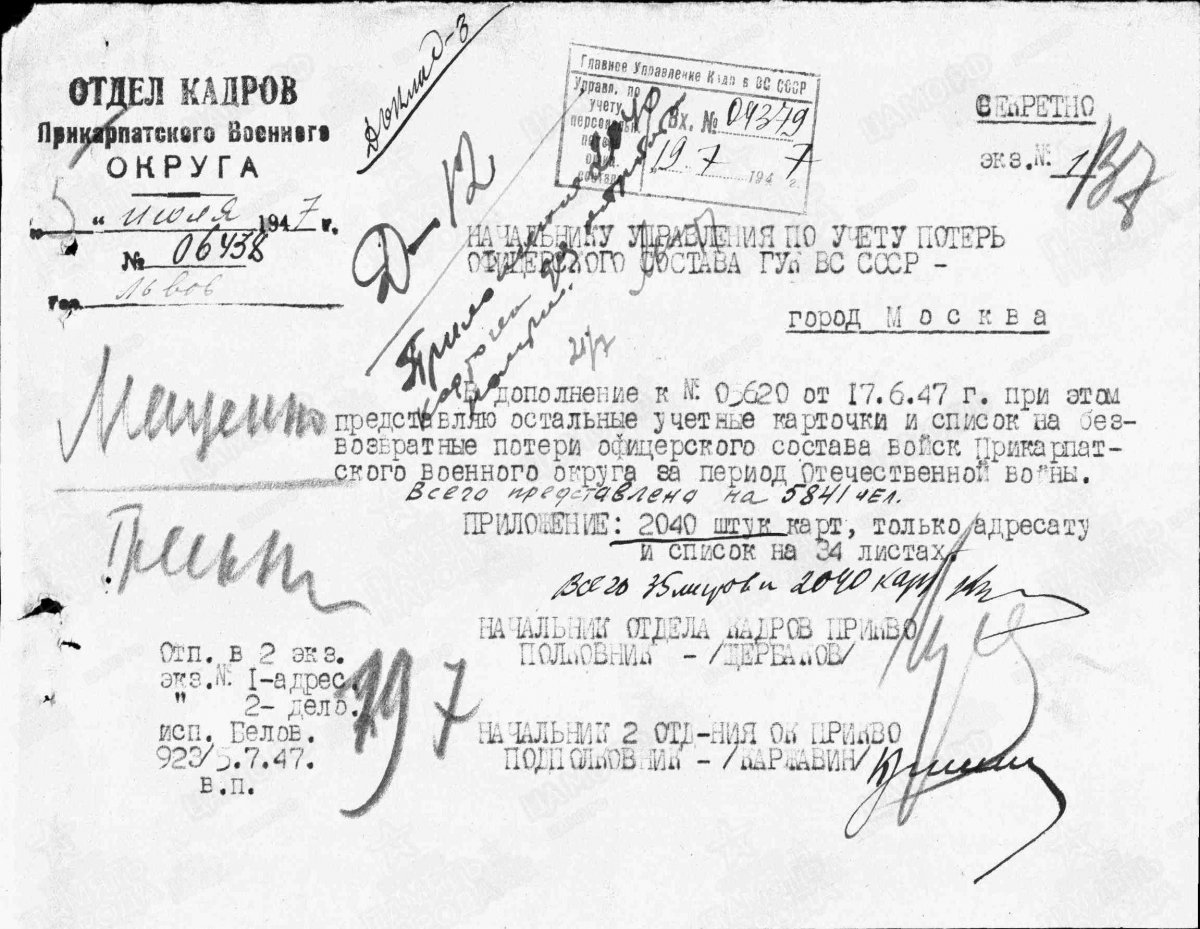 ОТДЕЛ КАДРОВ
Прикарпатского Военного
ОКРУГА
"5" июля 1947 г.
№ 06438
Гор. Львов
Доклад-3
Д-12
Главное Управление Кадр в ВС СССР
Управл. по
учету
персональн.
Вх. № 04379
19 7 1947 г.
СЕКРЕТНО
экз.№ 1
НАЧАЛЬНИКУ УПРАВЛЕНИЯ ПО УЧЕТУ ПОТЕРЬ
ОФИЦЕРСКОГО СОСТАВА ГУК ВС СССР -
город Москва
21/7
В дополнение к № 05620 от 17.6.47 г. при этом
представляю остальные учетные карточки и список на без-
возвратные потери офицерского состава войск Прикарпат-
ского военного округа за период Отечественной войны.
Всего представлено на 5841 чел.
ПРИЛОЖЕНИЕ: 2040 штук карт, только адресату
и список на 34 листах.
Всего 35 листов и 2040 карт
НАЧАЛЬНИК ОТДЕЛА КАДРОВ ПРИКВО
ПОЛКОВНИК - /ЩЕРБАКОВ/
НАЧАЛЬНИК 2 ОТД-НИЯ ОК ПРИКВО
ПОДПОЛКОВНИК - /КАРЖАВИН/
Маценко
Отп. в 2 экз.
экз.№ 1-адрес.
" 2- дело.
исп. Белов.
923/5.7.47.
в.п.
19 7